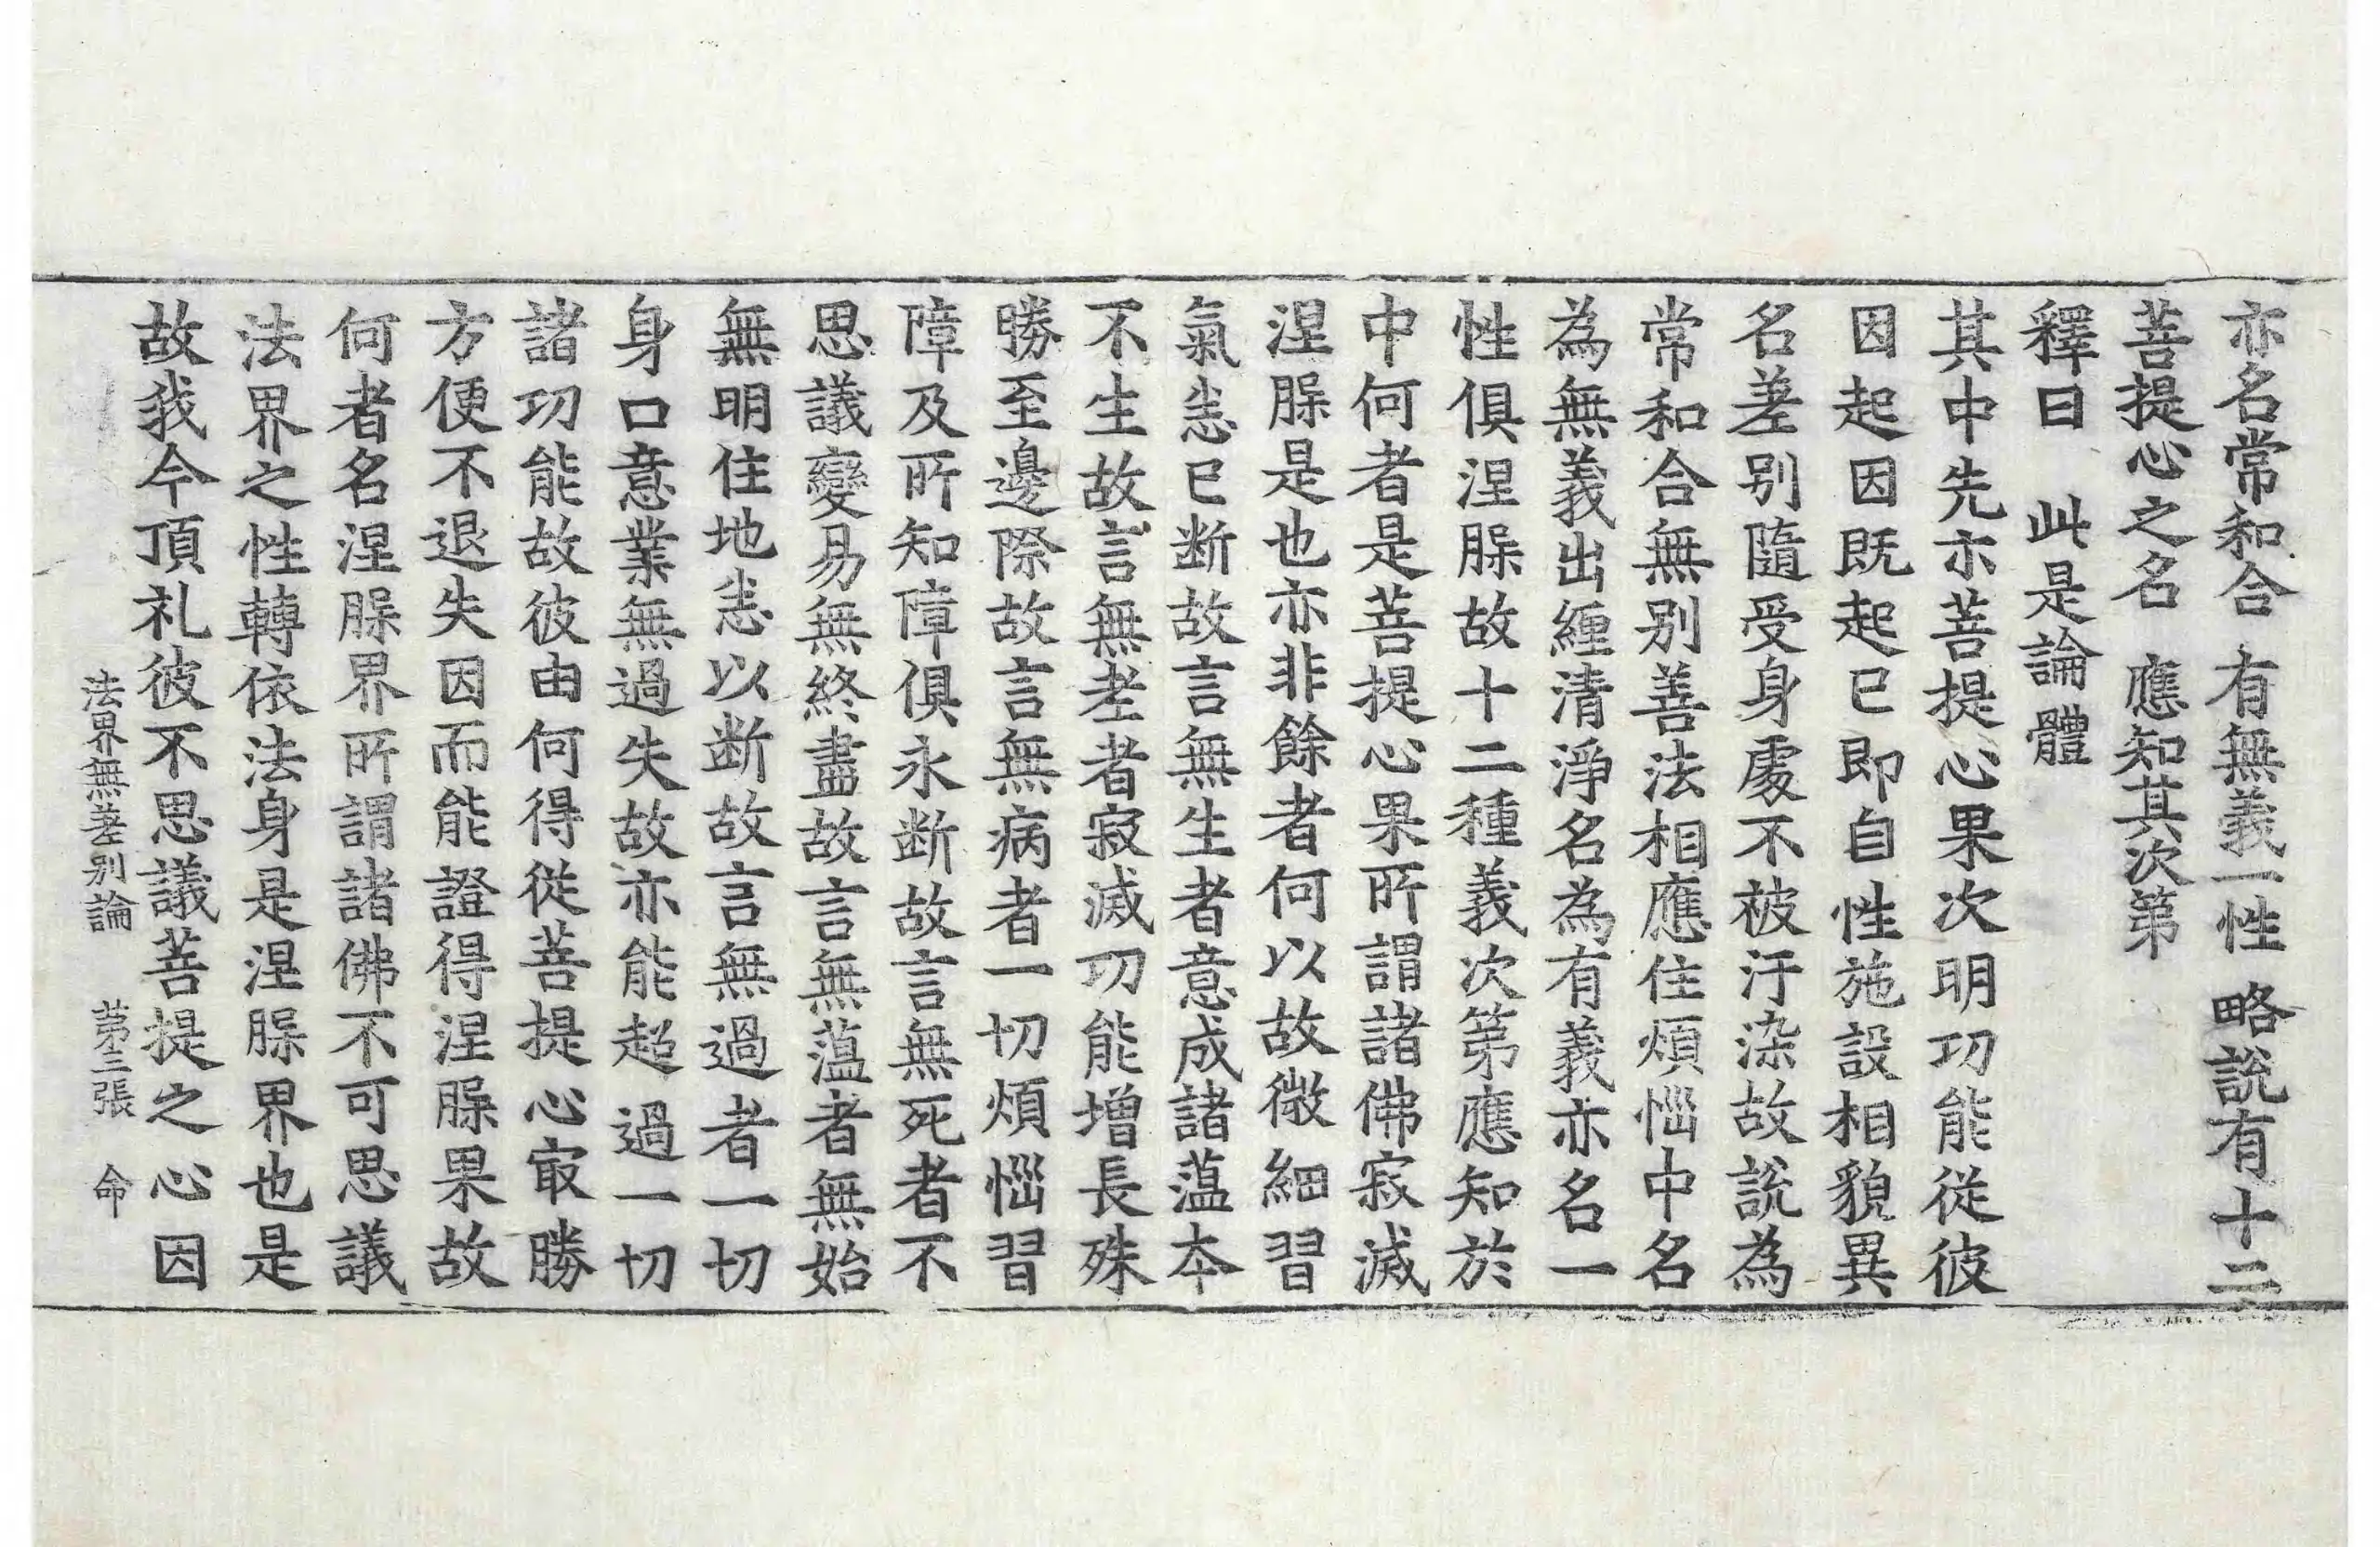 亦名常和合 有無義一性 略說有十二
菩提心之名 應知其次第
釋曰 此是論體
其中先示菩提心果次明功能從彼
因起因既起已即自性施設相貌異
名差别隨受身處不被汙染故說為
常和合無别善法相應住煩惱中名
為無義出纏清淨名為有義亦名一
性俱涅槃故十二種義次第應知於
中何者是菩提心果所謂諸佛寂滅
涅槃是也亦非餘者何以故微細習
氣悉已断故言無生者意成諸蕰本
不生故言無老者寂滅功能增長殊
勝至邊際故言無病者一切煩惱習
障及所知障俱永断故言無死者不
思議變易無終盡故言無蕰者無始
無明住地悉以断故言無過者一切
身口意業無過失故亦能超過一切
諸功能故彼由何得從菩提心㝡勝
方便不退失因而能證得涅槃果故
何者名涅槃界所謂諸佛不可思議
法界之性轉依法身是涅槃界也是
故我今頂礼彼不思議菩提之心因
法界無差别論 第三張 命